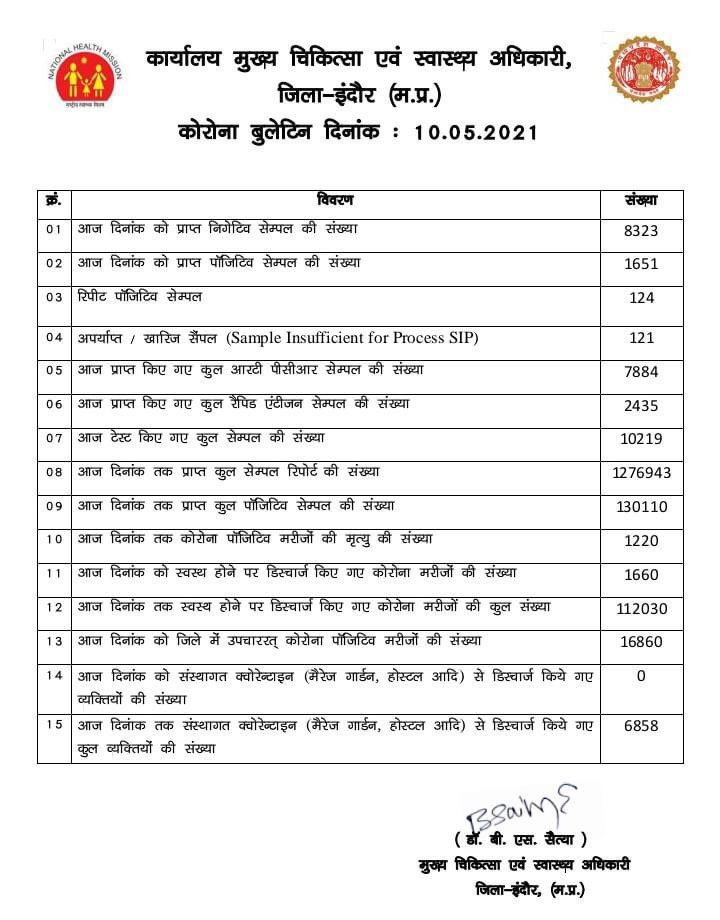 NATIONAL HEALTH MISSION
कार्यालय मुख्य चिकित्सा एवं स्वास्थ्य अधिकारी,
जिला-इंदौर (म.प्र.)
कोरोना बुलेटिन दिनांक : 10.05.2021
क्रं. विवरण संख्या
01 आज दिनांक को प्राप्त निगेटिव सेम्पल की संख्या 8323
02 आज दिनांक को प्राप्त पॉजिटिव सेम्पल की संख्या 1651
03 रिपीट पॉजिटिव सेम्पल 124
04 अपर्याप्त / खारिज सैंपल (Sample Insufficient for Process SIP) 121
05 आज प्राप्त किए गए कुल आरटी पीसीआर सेम्पल की संख्या 7884
06 आज प्राप्त किए गए कुल रैपिड एंटीजन सेम्पल की संख्या 2435
07 आज टेस्ट किए गए कुल सेम्पल की संख्या 10219
08 आज दिनांक तक प्राप्त कुल सेम्पल रिपोर्ट की संख्या 1276943
09 आज दिनांक तक प्राप्त कुल पॉजिटिव सेम्पल की संख्या 130110
10 आज दिनांक तक कोरोना पॉजिटिव मरीजों की मृत्यु की संख्या 1220
11 आज दिनांक को स्वस्थ होने पर डिस्चार्ज किए गए कोरोना मरीजों की संख्या 1660
12 आज दिनांक तक स्वस्थ होने पर डिस्चार्ज किए गए कोरोना मरीजों की कुल संख्या 112030
13 आज दिनांक को जिले में उपचाररत् कोरोना पॉजिटिव मरीजों की संख्या 16860
14 आज दिनांक को संस्थागत क्वोरेन्टाइन (मैरेज गार्डन, होस्टल आदि) से डिस्चार्ज किये गए 0
व्यक्तियों की संख्या
15 आज दिनांक तक संस्थागत क्वोरेन्टाइन (मैरेज गार्डन, होस्टल आदि) से डिस्चार्ज किये गए 6858
कुल व्यक्तियों की संख्या
( डॉ. बी. एस. सैत्या )
मुख्य चिकित्सा एवं स्वास्थ्य अधिकारी
जिला-इंदौर, (म.प्र.)